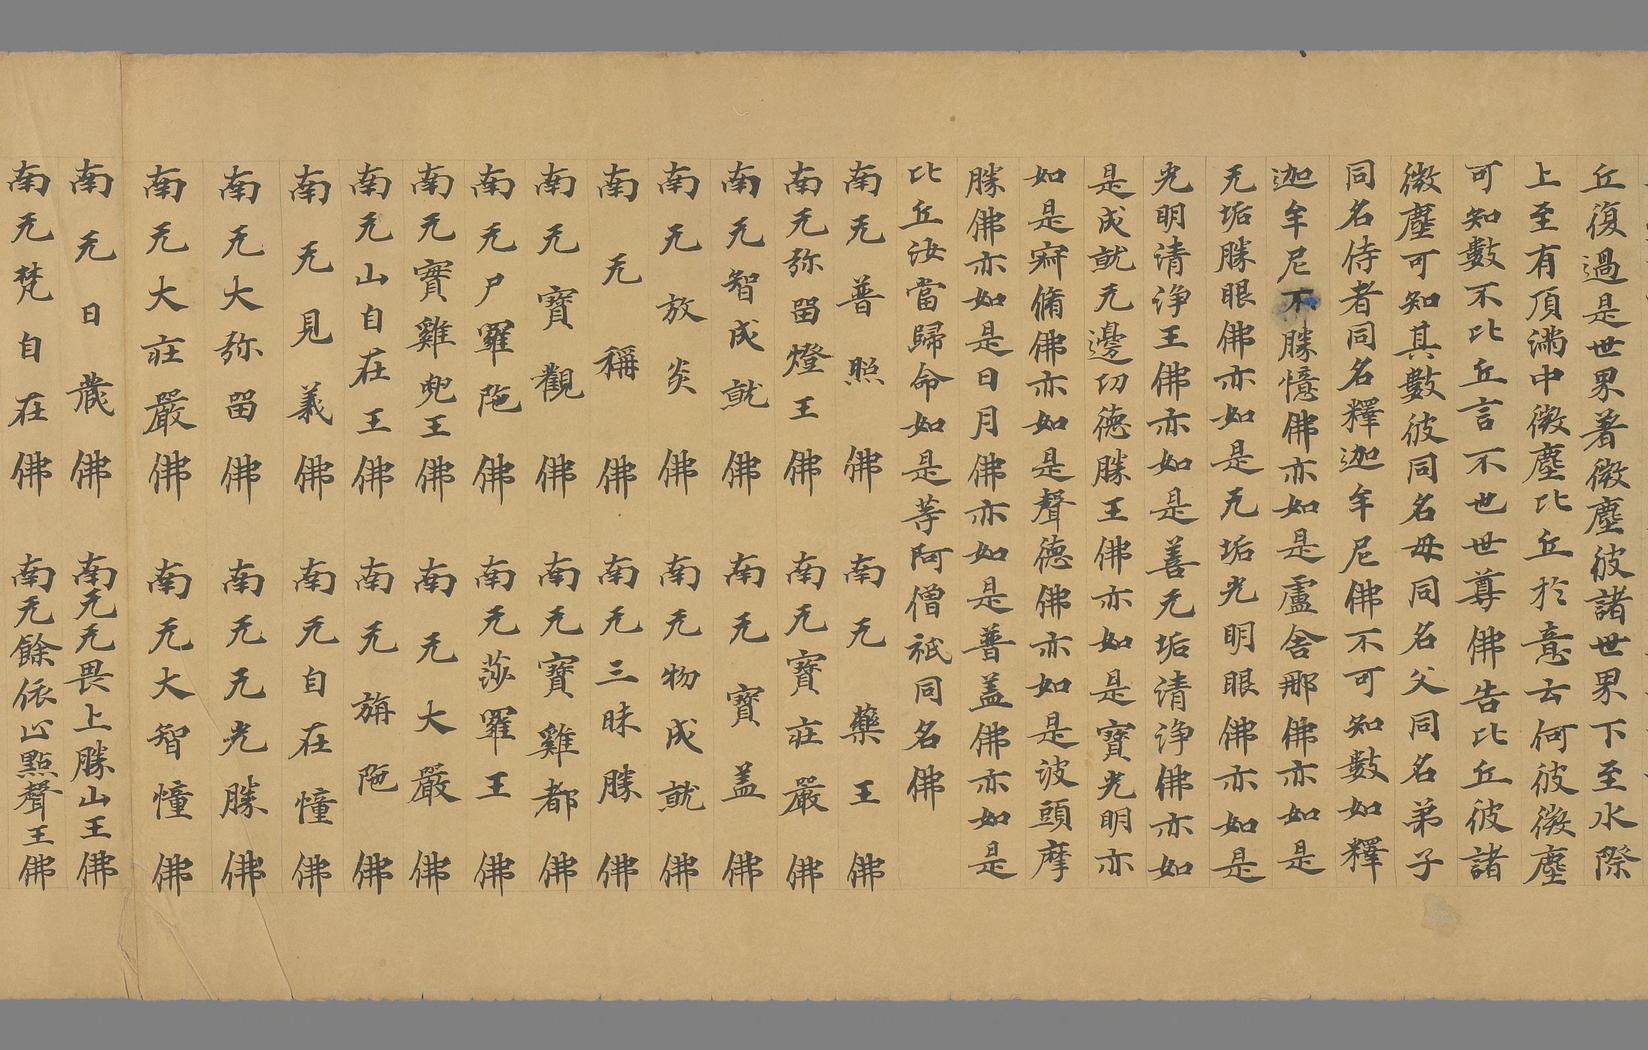 丘復過是世界著微塵彼諸世界下至水際
上至有頂滿中微塵比丘於意云何彼微塵
可知數不比丘言不也世尊佛告比丘彼諸
微塵可知其數彼同名母同名父同名弟子
同名侍者同名釋迦牟尼佛不可知數如釋
迦牟尼不勝憶佛亦如是盧舍那佛亦如是
无垢勝眼佛亦如是无垢光明眼佛亦如是
光明清淨王佛亦如是善无垢清淨佛亦如
是成就无邊功德勝王佛亦如是寶光明亦
如是寐脩佛亦如是聲德佛亦如是波頭摩
勝佛亦如是日月佛亦如是普盖佛亦如是
比丘汝當歸命如是等阿僧祇同名佛
南无普照佛 南无藥王佛
南无弥留燈王佛 南无寶莊嚴佛
南无智成就佛 南无寶盖佛
南无放炎佛 南无物成就佛
南无稱佛 南无三昧勝佛
南无寶觀佛 南无寶雞都佛
南无尸羅陁佛 南无莎羅王佛
南无寶雞兜王佛 南无大嚴佛
南无山自在王佛 南无旃陁佛
南无見義佛 南无自在憧佛
南无大弥留佛 南无无光勝佛
南无大莊嚴佛 南无大智憧佛
南无日藏佛 南无无畏上勝山王佛
南无梵自在佛 南无餘依止點聲王佛